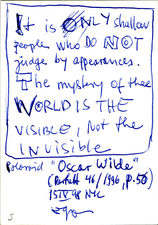 It is ONLY shallow
people who DO NOT
judge by appearances.
The mystery of thee
WORLD IS THE
VISIBLE, Not the
INVISIBLE
Polaroid "Oscar Wilde"
46/1996, p.50)
98 NYC